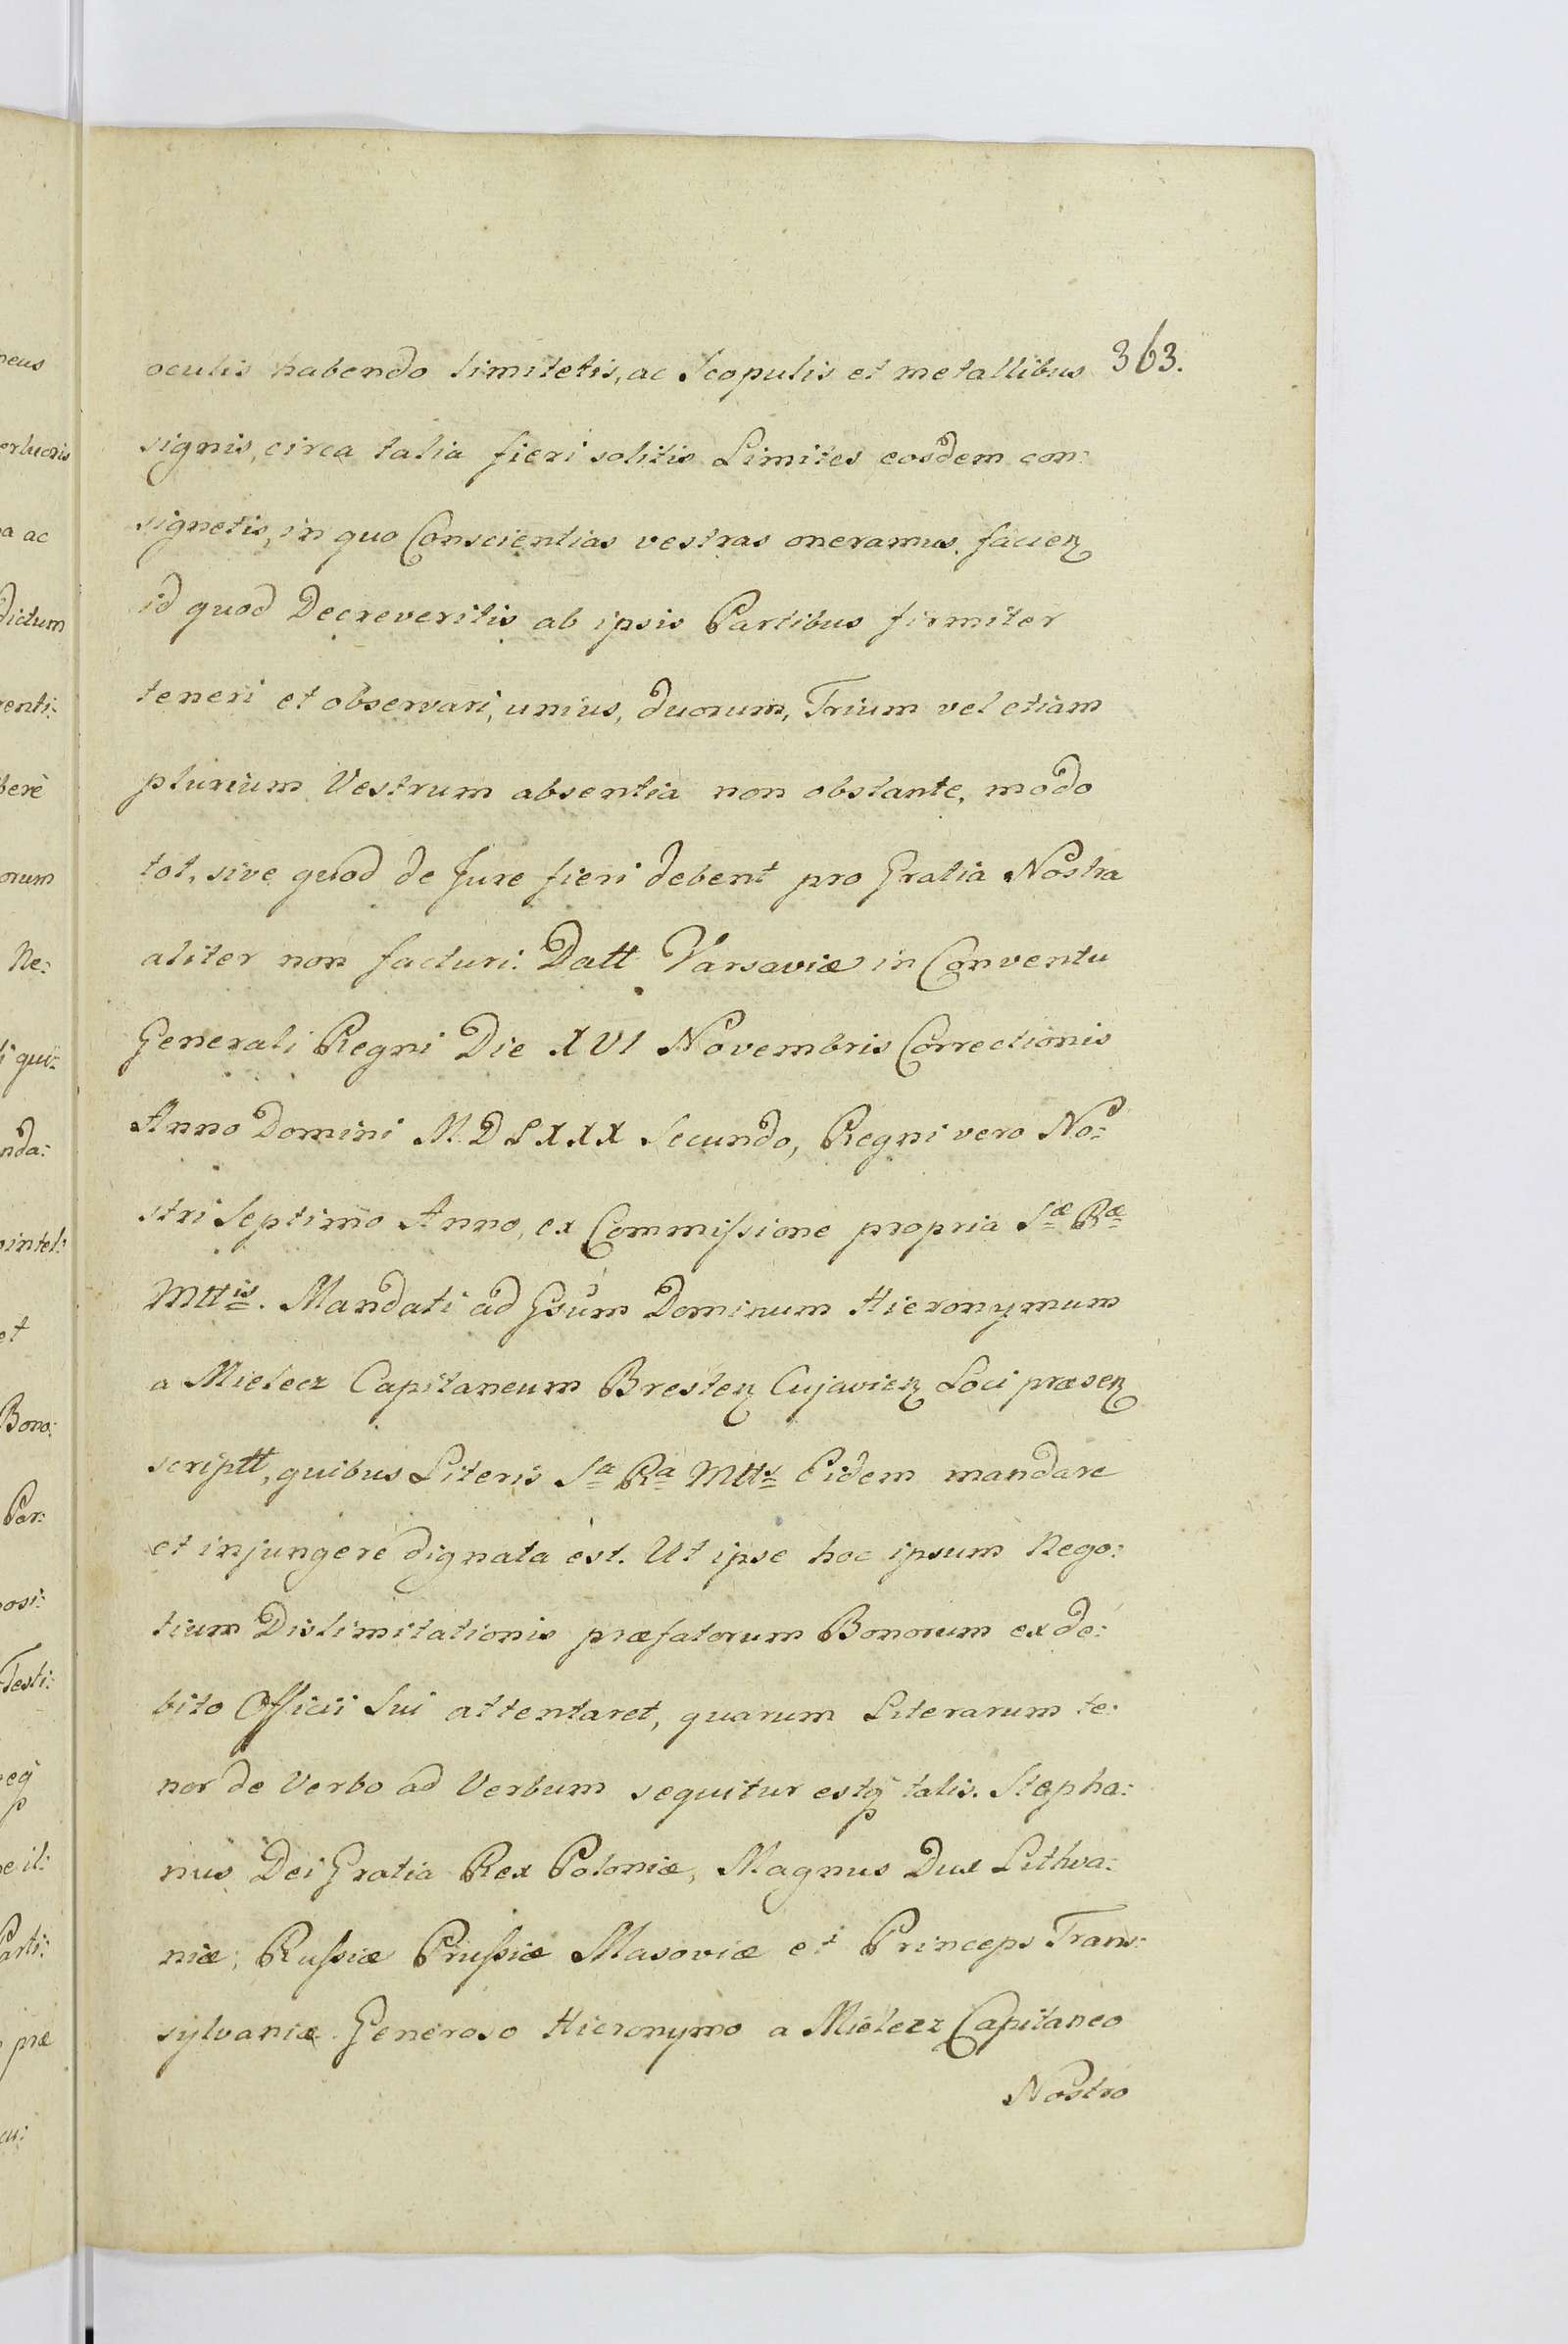 363.
oculis habendo limitetis, ac Scopulis et metallibus
signis, circa talia fieri solitis Limites eosdem con:
signetis, in quo Conscientias vestras oneramus. facien
id quod Decreveritis ab ipsis Partibus firmiter
teneri et observari, unius, duorum, Trium vel etiam
plurium Vestrum absentia non obstante, modo
tot, sive quod de Jure fieri debent pro Gratia Nostra
aliter non facturi. Datt Varsaviæ in Conventu
Generali Regni Die XVI Novembris Correctionis
Anno Domini M.DLXXX Secundo, Regni vero No:
stri Septimo Anno, ex Commissione propria Sæ Ræ
Mttis. Mandati ad Gsum Dominum Hieronymum
a Mielecz Capitaneum Bresten Cujavien Loci præsen
scriptt, quibus Literis Sa Ra Mtts Eidem mandare
et injungere dignata est. Ut ipse hoc ipsum Nego:
tium Dislimitationis præfatorum Bonorum ex de:
bito Officii Sui attentaret, quarum Literarum te:
nor de Verbo ad Verbum sequitur estq talis. Stepha:
nus Dei Gratia Rex Poloniæ, Magnus Dux Lithva:
niæ, Russiæ Prussiæ Masoviæ et Princeps Trans:
sylvaniæ. Generoso Hieronymo a Mielecz Capitaneo
Nostro